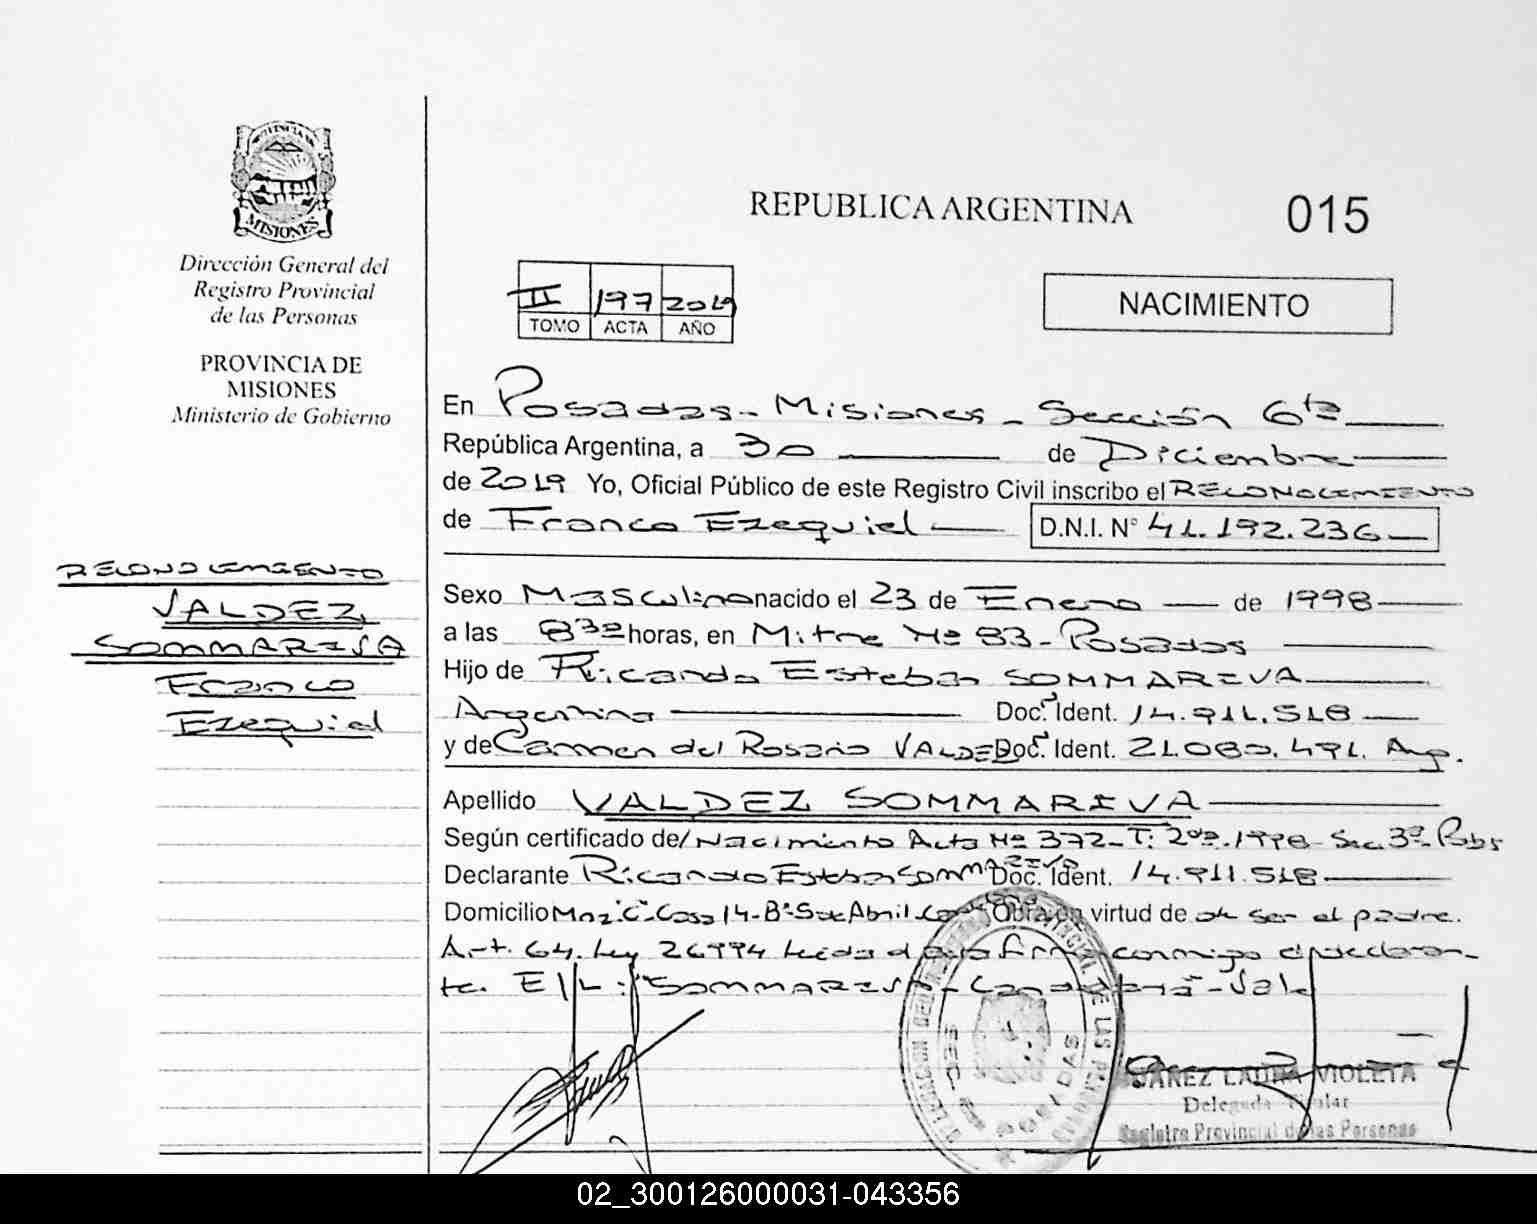 PROVINCIA DE
MISIONES
Dirección General del
Registro Provincial
de las Personas
PROVINCIA DE
MISIONES
Ministerio de Gobierno
RECONOCIMIENTO
VALDEZ
SOMMARIVA
Franco
Ezequiel
REPUBLICA ARGENTINA
015
II 197 2019
TOMO ACTA AÑO
NACIMIENTO
En Posadas - Misiones - Sección 6ta
República Argentina, a 30 de Diciembre
de 2019 Yo, Oficial Público de este Registro Civil inscribo el RECONOCIMIENTO
de Franco Ezequiel D.N.I. N° 41.192.236
Sexo Masculino nacido el 23 de Enero de 1998
a las 8 30 horas, en Mitre Nº 83 - Posadas
Hijo de Ricardo Esteban SOMMARIVA
Argentina Doc. Ident. 14.911.518
y de Carmen del Rosario VALDEZ Doc. Ident. 21.080.491. Arg.
Apellido VALDEZ SOMMARIVA
Según certificado de/ Nacimiento Acta Nº 372 - T: 2º - 1998 - Sec. 3ª - Pdas
Declarante Ricardo Esteban SOMMARIVA Doc. Ident. 14.911.518
Domicilio Mnz "C" - Casa 14 - Bº - 5 de Abril Obra en virtud de de ser el padre.
Art. 64. Ley 26994 Leída el acta firma conmigo el declaran-
te. E/L: "SOMMARIVA - -Vale
JUAREZ LAURA VIOLETA
Delegada Titular
Registro Provincial de las Personas
02_300126000031-043356